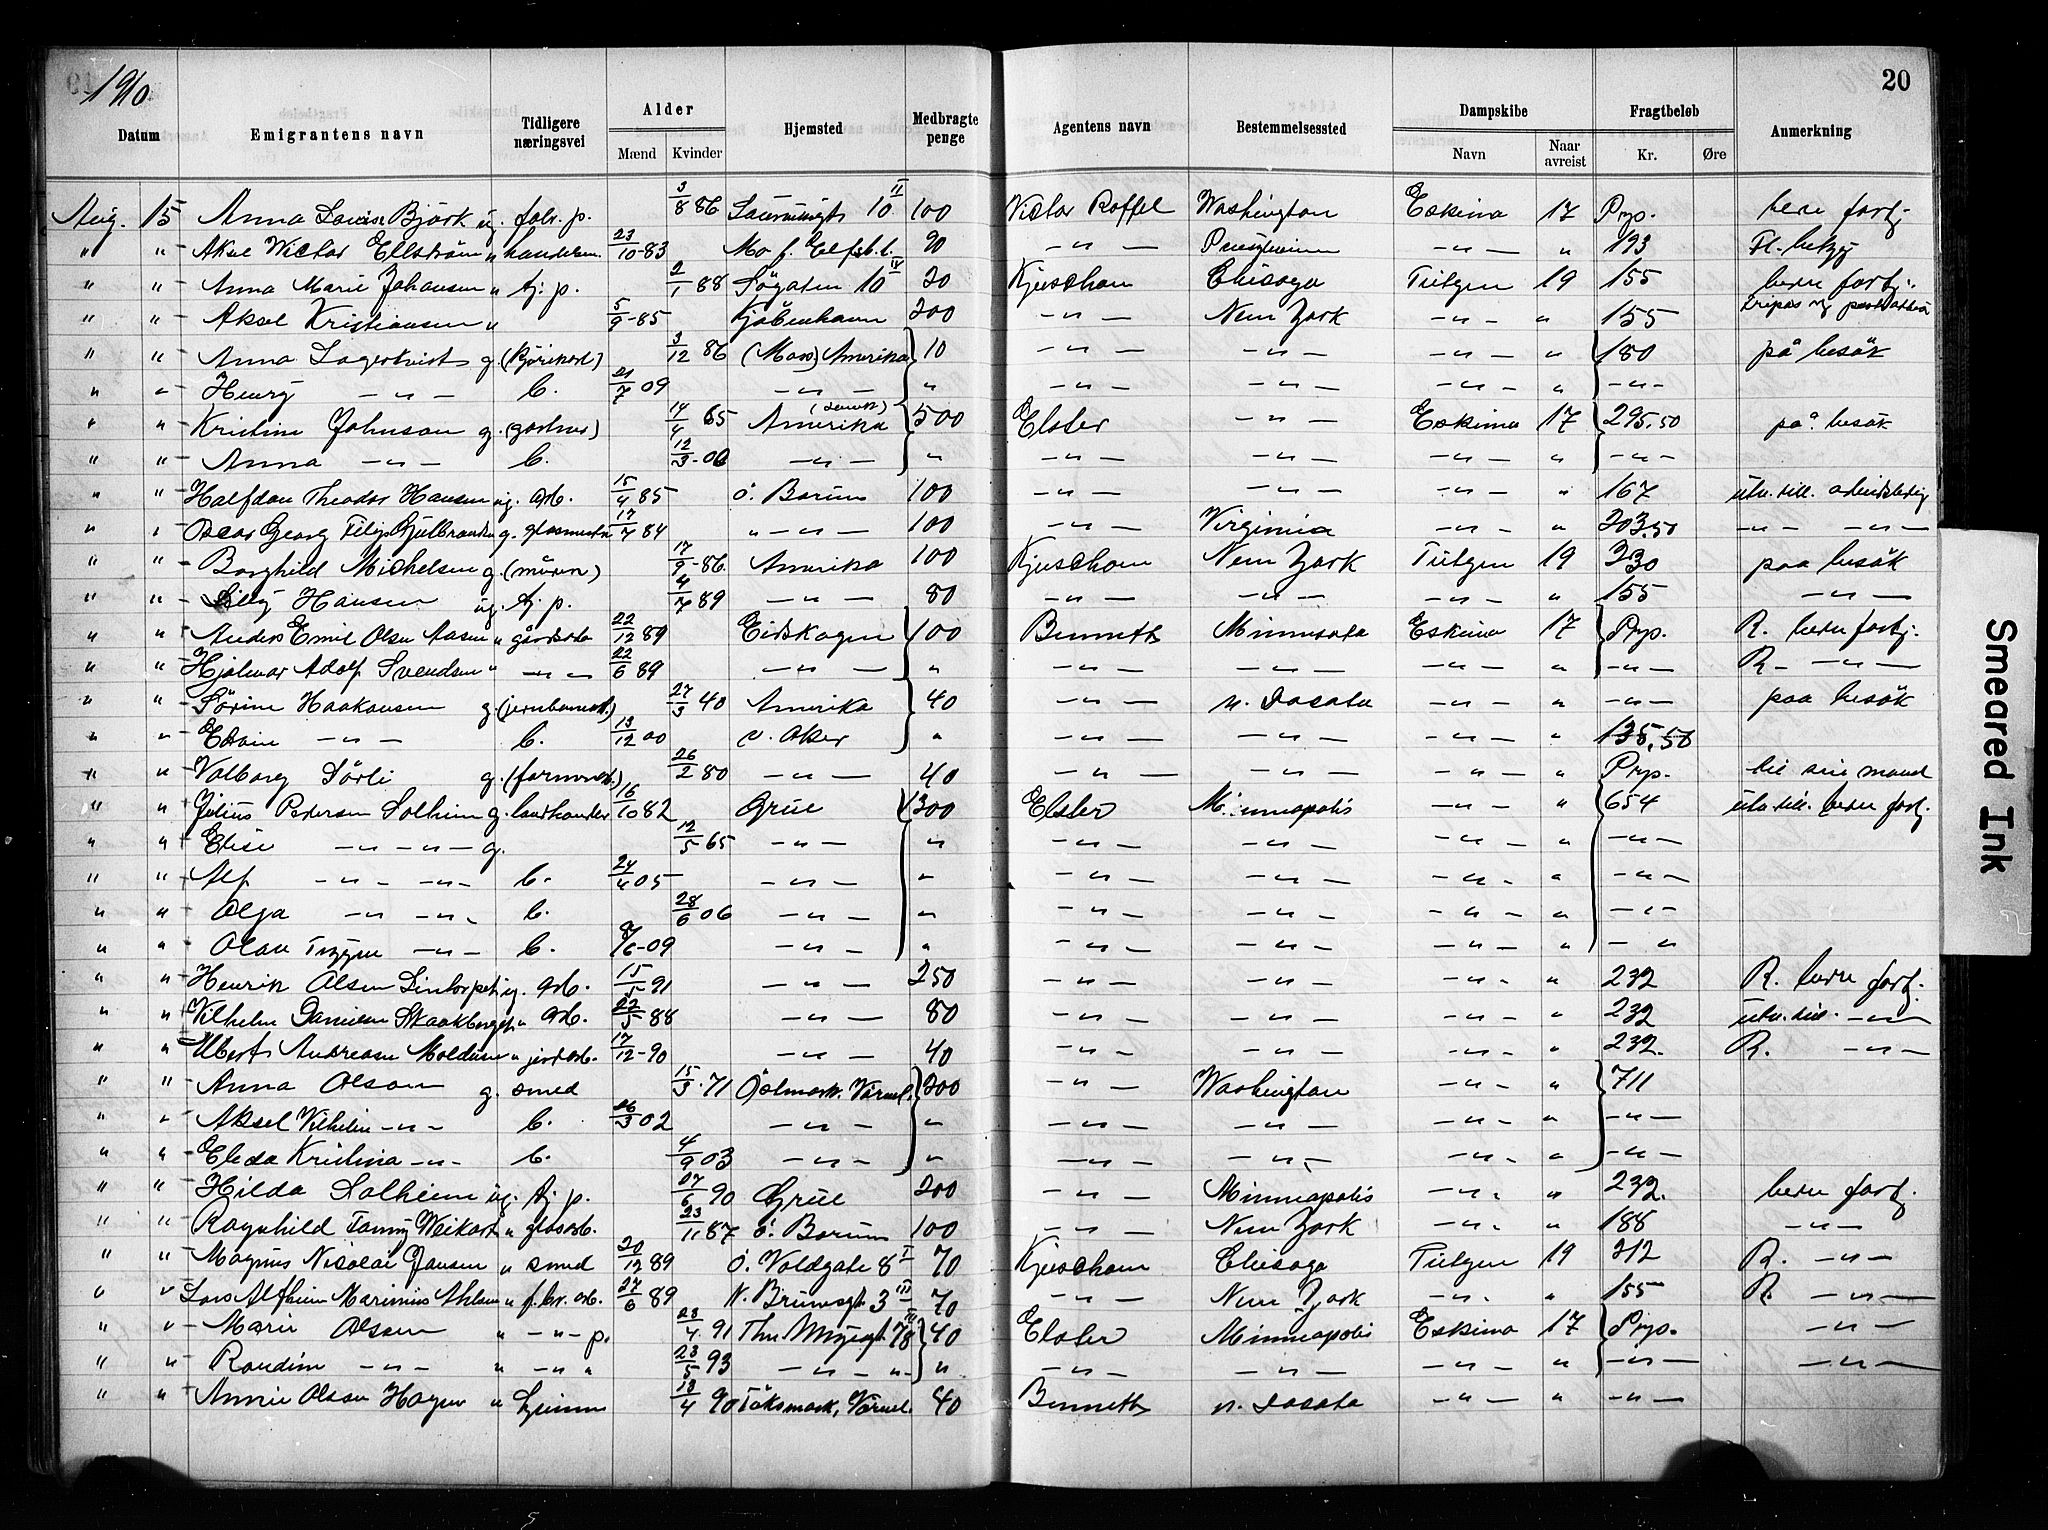 1910
20
Datum | Emigrantens navn | Tidligere næringsvei | Alder Mænd Kvinder | Hjemsted | Medbragte penge | Agentens navn | Bestemmelsessted | Dampskibe Navn Naar avreist | Fragtbeløb Kr. Øre | Anmerkning
Aug. 15 Anna Louise Björk u. fabr. p. 3/8 86 10 II 100 Victor Roffel Washington Eskimo 17 Prp. bere fortj
" " Aksel Victor Ellström " handelsm. 23/10-83 Mo f. Elfsb. l. 90 -"- -"- " 193
" " Anna Marie Johansen " tj. p. 2/1 88 Søgaten 10 IV 20 Kjuscham Chicago Tietgen 19 155 bere fortj.
" " Aksel Kristiansen " 5/9-85 Kjöbenhavn 200 -"- New York -"- " 155
" " Anna Lagerkvist g. 3/12 86 (Mass) Amerika 10 -"- -"- -"- " 180 på besök
" " Henry -"- b. 21/7 09 -"- " -"- -"- -"- " -"-
" " Kristine Johnson g. (gartner) 14/4 65 Amerika 500 Elster -"- Eskimo 17 295.50 på besök
" " Anna -"- b. 12/3-06 -"- " -"- -"- -"- " -"-
" " Halfdan Theodor Hansen ug. arb. 15/4 85 ö. Bærum 100 -"- -"- -"- " 167 utv. till. arbeidsledig
" " Oscar Georg Filip Gulbrandsen g. glasmester 17/7 84 "-"- 100 -"- Virginia -"- " 203.50 -"- -"-
" " Borghild Michelsen g. (murer) 17/9-86 Amerika 100 Kjuscham New York Tietgen 19 330 paa besök
" " Lilly Hansen ug. tj. p. 4/7 89 -"- 80 -"- -"- -"- " 155 -"-
" " Anders Emil Olsen Aasen " gårdarb 22/12 89 Eidskogen 400 Bennett Minnesota Eskimo 17 Prp. R. bere fortj.
" " Hjalmar Adolf Svendsen " -"- 22/6 89 -"- " -"- -"- -"- " -"- R. -"-
" " Sörine Haakonsen g. (jernbanearb.) 27/3 40 Amerika 40 -"- n. Dacota -"- " -"- paa besök
" " Edvin -"- b. 13/12 00 v. Aker " -"- -"- -"- " 135.50
" " Valborg Sörli g. (farmer) 26/2 80 -"- 40 -"- -"- -"- " Prp. til sin mand
" " Julius Pedersen Solheim g. landhandler 16/10 82 Grue 1300 Elster Minneapolis -"- " 654 utv. till. bere fortj.
" " Elise -"- -"- g. 12/5 65 -"- " -"- -"- -"- " -"-
" " Alf -"- -"- b. 24/4 05 -"- " -"- -"- -"- " -"-
" " Olga -"- -"- b. 28/6 06 -"- " -"- -"- -"- " -"-
" " Olav Trygve -"- b. 8/6-09 -"- " -"- -"- -"- " - "
" " Henrik Olsen Lintorpet ug. arb. 15/5 91 -"- 250 -"- -"- -"- " 232 R. bere fortj.
" " Vilhelm Danielsen Skaakberget " arb. 22/5 88 -"- 80 -"- -"- -"- " 232 utv. till. -"-
" " Albert Andreasen Moldusen " jordarb. 17/12-90 -"- 40 -"- -"- -"- " 232. R. -"-
" " Anna Olson g. smed 15/3-71 Östmark. Värml. 200 -"- Washington -"- " 711
" " Aksel Vilhelm -"- b. 26/3 02 -"- " -"- -"- -"- " -"-
" " Eleda Kristina -"- b. 4/9 03 -"- " -"- -"- -"- " -"-
" " Hilda Solheim ug. tj. p. 27/6 90 Grue 200 -"- Minneapolis -"- " 232. bere fortj.
" " Ragnhild Fanny Weikart " glasarb. 23/11 87 ö. Bærum 100 -"- New York -"- " 188 -"-
" " Magnus Nicolai Jansen " smed 20/12 89 ö. Voldgate 8 I 70 Kjuscham Chicago Tietgen 19 212 R. -"-
" " Lars Alfheim Marinius Ahlsen " f. br. arb. 27/6 89 N. Brunsgt. 3 III 70 -"- New York -"- " 155 R. -"-
" " Marie Olsen " -"- p. 28/4.91 Thv. Meyersgt. 78 40 Elster Minneapolis Eskimo 17 Prp. -"-
" " Randine -"- " -"- " 23/5 93 -"- " -"- -"- -"- " -"- -"-
" " Annie Olson Hagen " hjemme 13/4 90 Töcksmark, Värml. 40 Bennett n. Dacota -"- " -"-
Smeared Ink